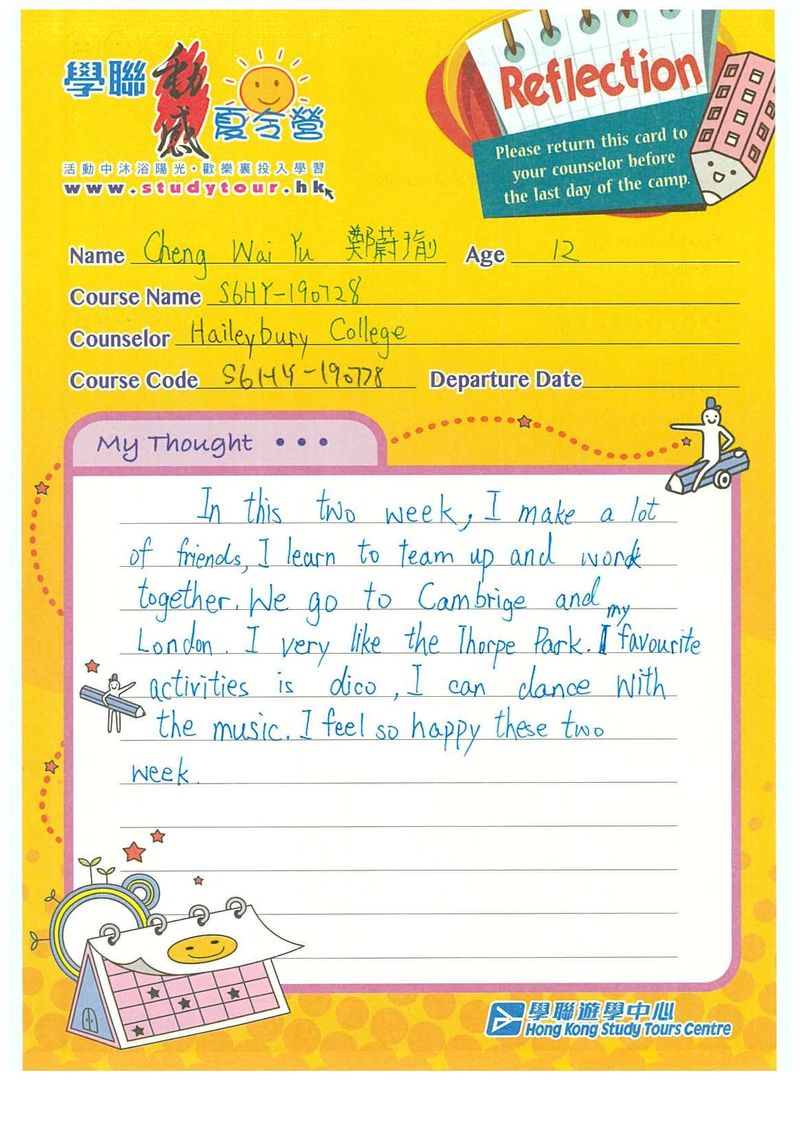 學聯動感夏令營
活動中沐浴陽光・歡樂裏投入學習
www.studytour.hk
Reflection
Please return this card to
your counselor before
the last day of the camp.
Name Cheng Wai Yu 鄭蔚瑜 Age 12
Course Name S6HY-190728
Counselor Haileybury College
Course Code S6HY-190728 Departure Date
My Thought • • •
In this two week, I make a lot
of friends, I learn to team up and work
together. We go to Cambrige and
London. I very like the Thorpe Park. my favourite
activities is dico, I can dance with
the music. I feel so happy these two
week.
學聯遊學中心
Hong Kong Study Tours Centre